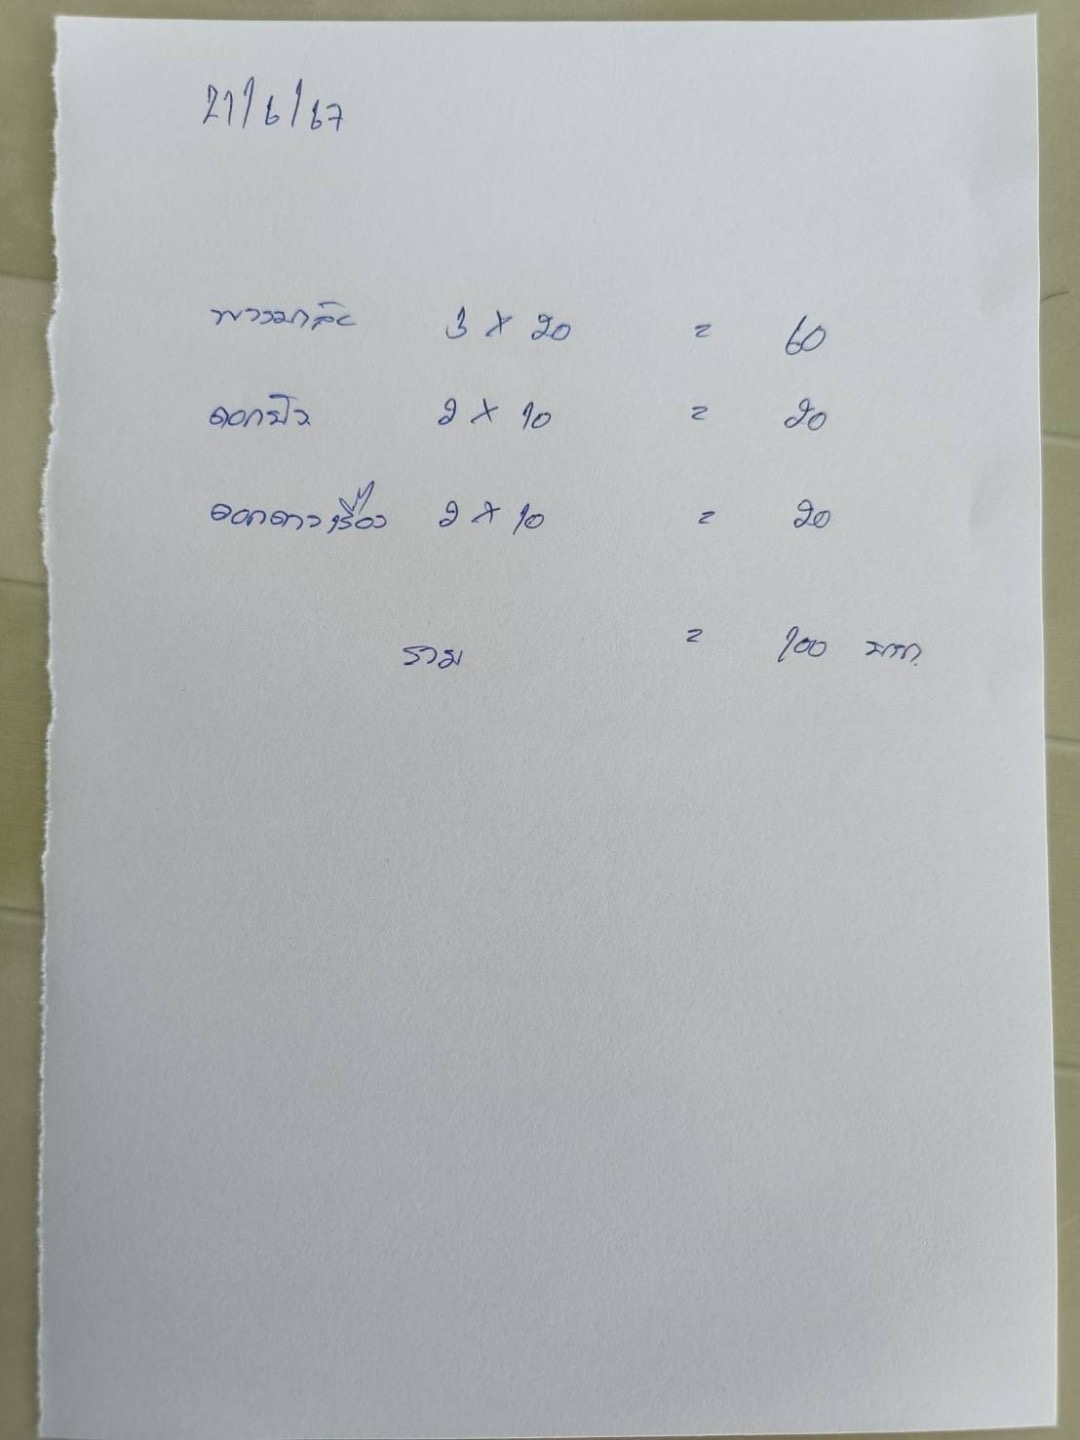 21/6/67
พวงมาลัย 3 x 20 = 60
ดอกบัว 2 x 10 = 20
ดอกดาวเรือง 2 x 10 = 20
รวม = 100 บาท